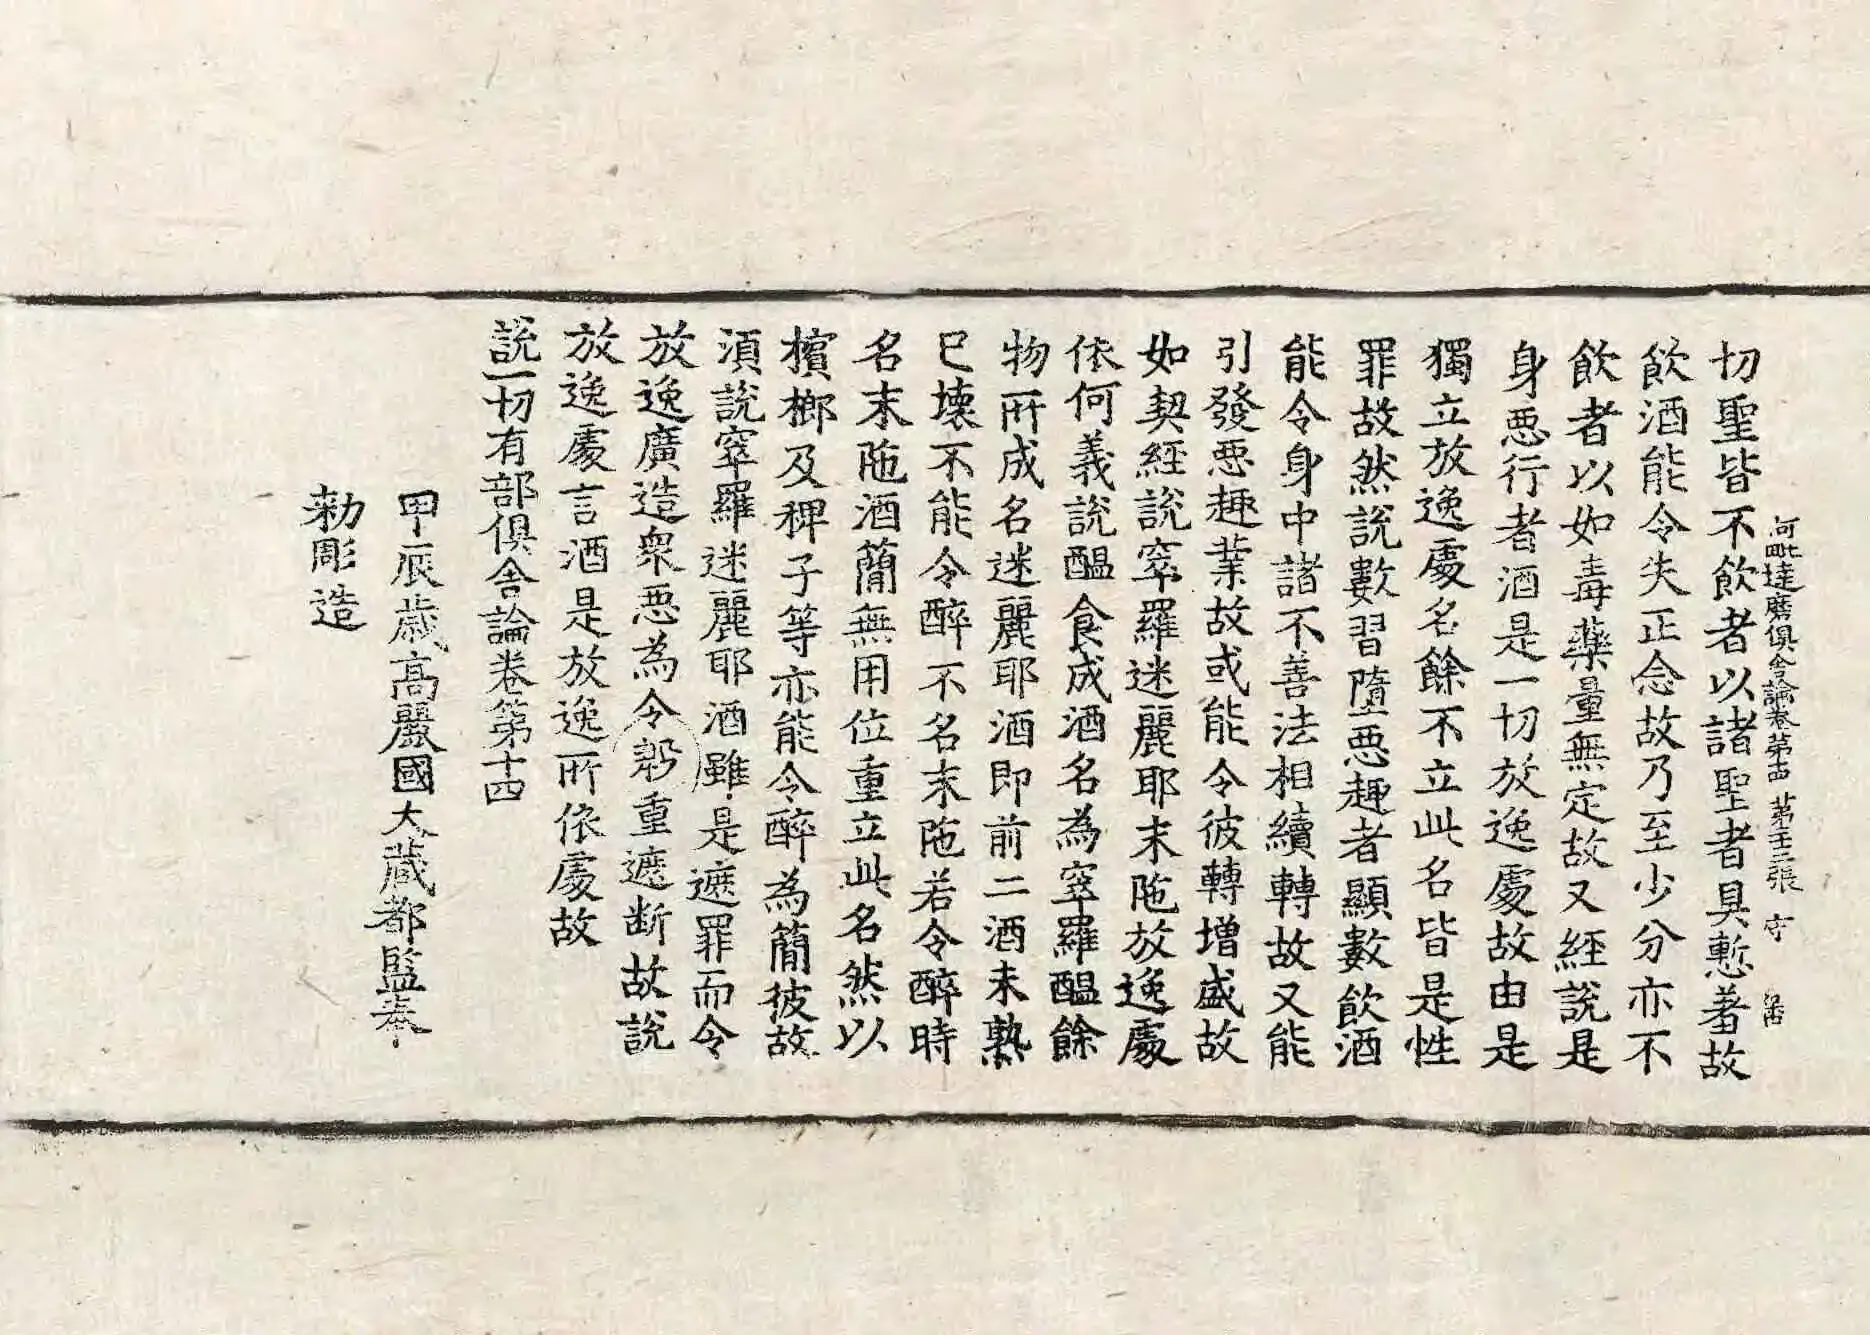 阿毗達磨俱舍論卷第十四 第二十二張 守
切聖皆不飮者以諸聖者具慙着故
飮酒能令失正念故乃至少分亦不
飮者以如毒藥量無定故又經說是
身惡行者酒是一切放逸處故由是
獨立放逸處名餘不立此名皆是性
罪故然說數習墮惡趣者顯數飮酒
能令身中諸不善法相續轉故又能
引發惡趣業故或能令彼轉增盛故
如契經說窣羅迷麗耶末陁放逸處
依何義說醞食成酒名爲窣羅醞餘
物所成名迷麗耶酒即前二酒未熟
已壞不能令醉不名末陁若令醉時
名末陁酒簡無用位重立此名然以
檳榔及稗子等亦能令醉爲簡彼故
湏說窣羅迷麗耶酒雖是遮罪而令
放逸廣造衆惡爲令慇重遮断故說
放逸處言酒是放逸所依處故
說一切有部俱舍論卷第十四
甲辰歲高麗國大藏都監奉
勑彫造